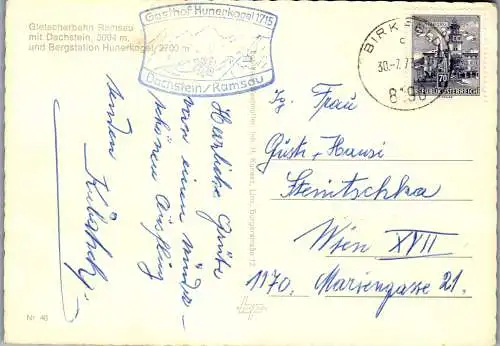 Gletscherbahn Ramsau
mit Dachstein, 3004 m
und Bergstation Hunerkogel/2700 m
Gasthof Hunerkogel 1715
Dachstein/Ramsau
BIRKFELD
c
30.-7.7
8190
70
REPUBLIK ÖSTERREICH
Herzliche Grüße
von einem wunder-
schönen Ausflug
senden
Frau
Gusti + Hansi
Steinitschka
Wien XVII
1170. Mariengasse 21.
Nr. 46